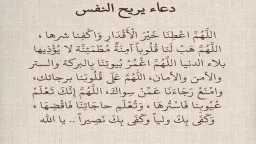 دعاء يريح النفس
اللَّهُمَّ اعْطِنَا خَيْرَ الْأَقْدَارِ وَاكْفِنَا شرها ،
اللَّهُمَّ هَبْ لَنَا قُلُوباً آمِنَةً مُطْمَئِنَّة لَا يُؤْذِيها
بلاء الدنيا اللَّهُمَّ اغْمُرْ بُيوتِنَا بالبركة والستر
والأمن والأمان، اللَّهُمَّ عَلِّ قُلُوبَنَا برجائك،
وامْنَعْ رَجَاءَنَا عَمَّنْ سِوَاكَ، اللَّهُمَّ إِنَّكَ تَعْلَمُ
عُيُوبنا فَاسْتُرهَا ، وَتَعْلَم حاجَاتِنَا فَاقْضِهَا ،
وَكَفَى بِكَ وَلِياً وَكَفَى بِكَ نَصِيراً .. يا الله